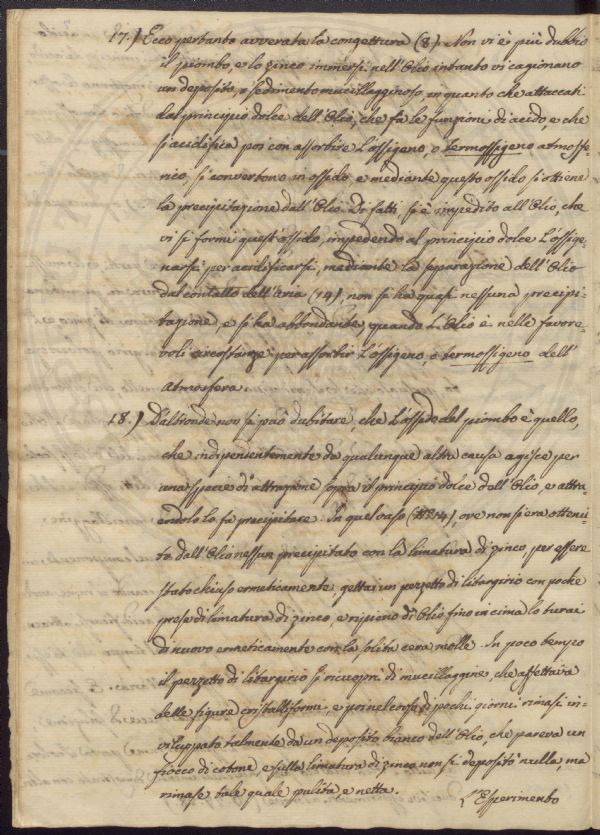 17.) Ecco pertanto avverata la congettura (8). Non vi è più dubbio
il piombo, e lo zinco immersi nell'Olio intanto vi cagionano
un deposito, o sedimento mucillagginoso, in quanto che attaccati
dal principio dolce dell'Olio, che fà le funzioni di acido, e che
si acidifica poi con assorbire l'ossigeno, o termossigeno atmosfe-
rico, si convertono in ossido, e mediante questo ossido si ottiene
la precipitazione dall'Olio. Di fatti, si è impedito all'Olio, che
vi si formi quest'ossido, impedendo al principio dolce l'ossige-
narsi per acidificarsi, mediante la separazione dell'Olio
dal contatto dell'aria (14), non si ha quasi nessuna precipi-
tazione, e si ha abbondante, quando l'Olio è nelle favore-
voli circostanze per assorbir l'ossigeno, o termossigeno dell'
atmosfera.
18.) D'altronde non si può dubitare, che l'ossido del piombo è quello,
che indipendentemente da qualunque altra causa agisce per
una specie di attrazione sopra il principio dolce dell'Olio, e attra-
endolo lo fa precipitare. In quel caso (14), ove non si era ottenu-
ta dall'Olio nessun precipitato con la limatura di zinco, per essere
stato chiuso ermeticamente, gettai un pezzetto di litargirio con poche
prese di limatura di zinco, e ripieno di Olio fino in cima lo turai
di nuovo ermeticamente con la solita cera molle. In poco tempo
il pezzetto di litargirio si ricuoprì di mucillaggine, che affettava
delle figure cristalliformi, e poi nel corso di pochi giorni rimase in-
viluppato talmente da un deposito bianco dell'Olio, che pareva un
fiocco di cotone, e sulla limatura di zinco non si depositò nulla, ma
rimase tale quale pulita, e netta.
L'Esperimento